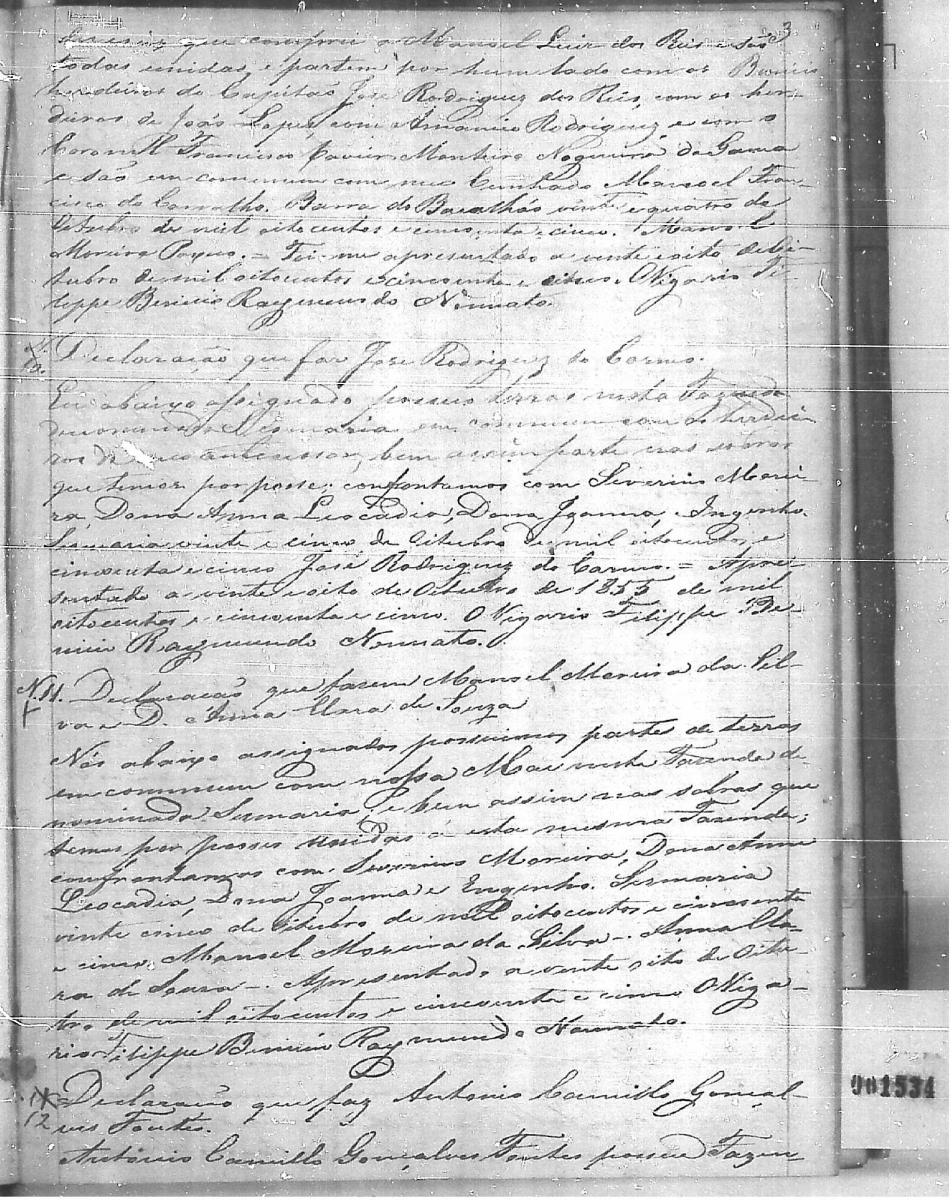 3
que comprei a Manoel Luiz dos Reis e são
todas unidas, e partem por hum lado com os
herdeiros do Capitão José Rodriguez dos Reis, com os her-
deiros de João Lopes com Amancio Rodriguez, e com o
Coronel Francisco Xavier Monteiro Nogueira da Gama
e são em commum com meu Cunhado Manoel Fran-
cisco de Carvalho. Barra do Bacalháo vinte e quatro de
Oitubro de mil oitocentos e cincoenta e cinco. Manoel
Moreira . = Foi-me apresentado a vinte e oito de Oi-
tubro de mil oitocentos e cincoenta e cinco. O Vigario Fi-
lippe Benicio Raymundo Nonnato.
N.
Declaração que faz José Rodriguez do Carmo.
Eu abaixo assignado possuo terras nesta Fazenda
denominada Sesmaria em commum com os herdei-
ros de meo antecessor, bem assim parte nas sobras
que temos por posse; confrontamos com Siverino Morei-
ra, Dona Anna Leocadia, Dona Joanna, e Ingenho.
Sesmaria vinte e cinco de Oitubro de mil oitocentos, e
cincoenta e cinco José Rodriguez do Carmo. = Apre-
sentado a vinte e oito de Oitubro de 1855 de mil
oitocentos e cincoenta e cinco. O Vigario Filippe Be-
nicio Raymundo Nonnato.
N. 11. Declaração que fazem Manoel Moreira da Sil-
va e D. Anna Clara de Souza
Nós abaixo assignados possuimos partes de terras
em commum com nossa Mae nesta Fazenda de-
nominada Sesmaria; e bem assim nas sobras que
temos por posses unidas á esta mesma Fazenda;
confrontamos com Severino Moreira, Dona Anna
Leocadia, Dona Joanna e Engenho. Sesmaria
vinte cinco de Oitubro de mil oitocentos e cincoenta
e cinco. Manoel Moreira da Silva -. Anna Cla-
ra de Souza -. Apresentado a vente oito de Oitu-
bro de mil oitocentos e cincoenta e cinco O Viga-
rio Filippe Benicio Raymundo Nonnato.
12 Declaração que faz Antonio Camillo Gonçal-
ves Fontes.
Antônio Camillo Gonçalves Fontes possue Fazen-
001534